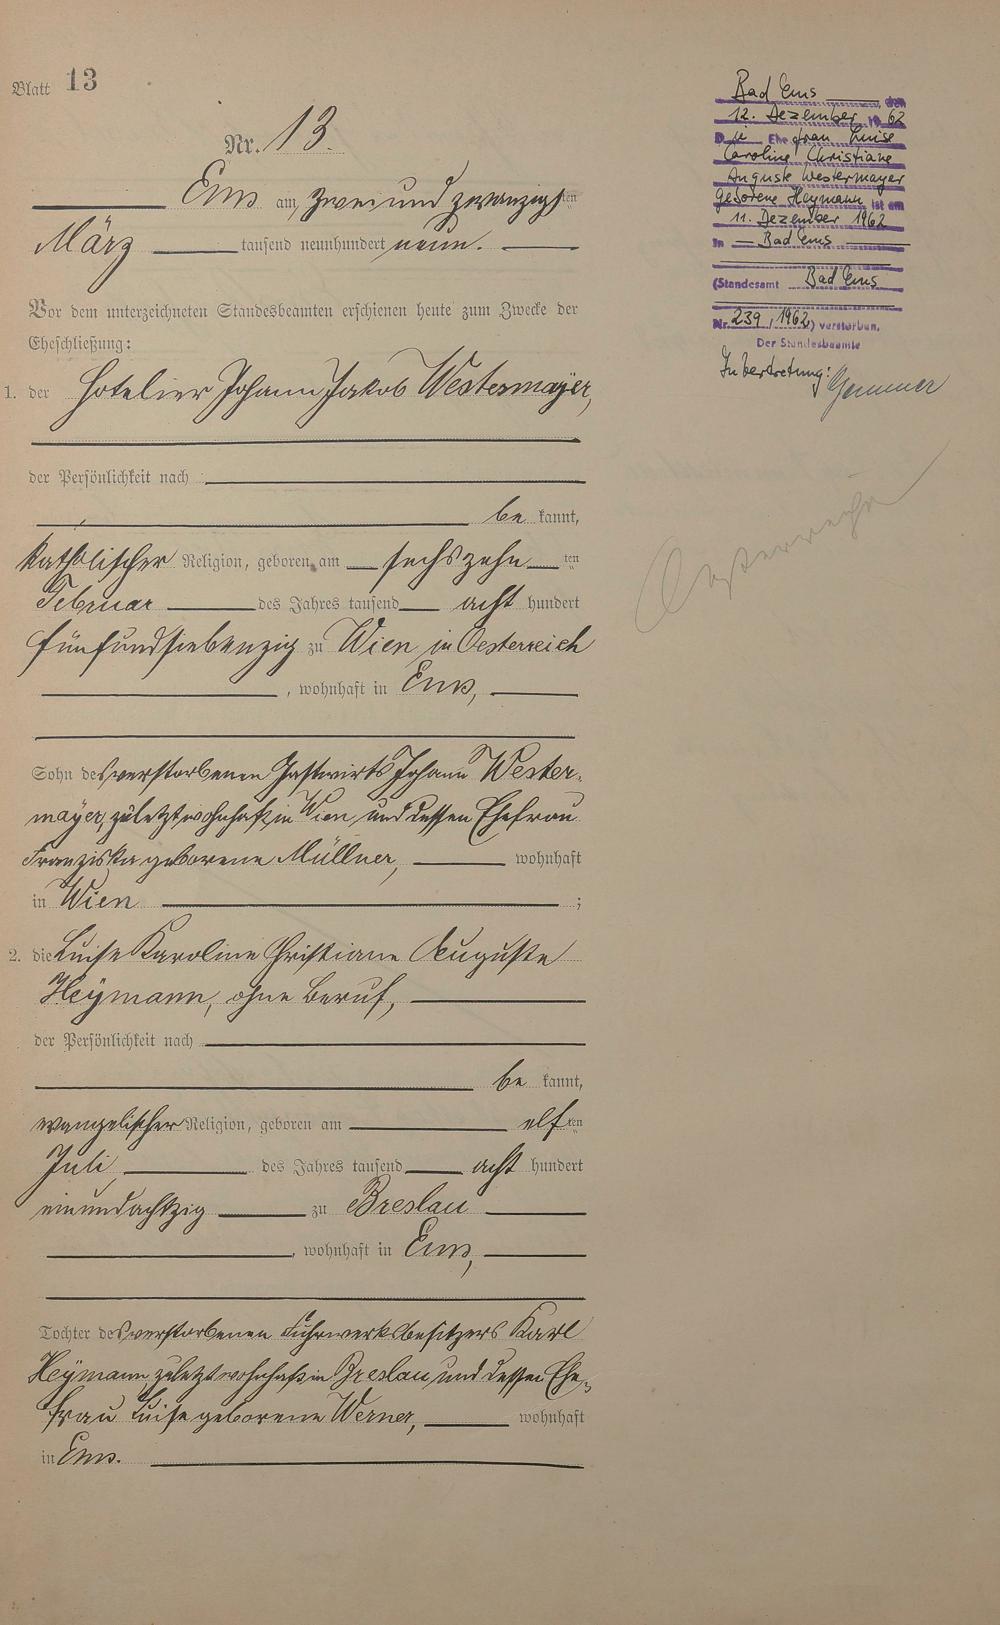 Blatt 13
Nr. 13.
Ems am zweiundzwanzigsten
März tausend neunhundert neun.
Vor dem unterzeichneten Standesbeamten erschienen heute zum Zwecke der
Eheschließung:
1. der Hotelier Johann Jakob Westermayer,
der Persönlichkeit nach
be kannt,
katholischer Religion, geboren am sechszehn ten
Februar des Jahres tausend acht hundert
fünfundsiebenzig zu Wien in Oesterreich
, wohnhaft in Ems,
Sohn des verstorbenen Gastwirts Johann Wester-
mayer, zuletzt wohnhaft in Wien, und dessen Ehefrau
Franziska geborene Müllner, wohnhaft
in Wien ;
2. die Luise Karoline Christiane Auguste
Heymann, ohne Beruf,
der Persönlichkeit nach
be kannt,
evangelischer Religion, geboren am elf ten
Juli des Jahres tausend acht hundert
einundachtzig zu Breslau
, wohnhaft in Ems,
Tochter des verstorbenen Fuhrwerksbesitzers Karl
Heymann, zuletzt wohnhaft in Breslau und dessen Ehe-
frau Luise geborene Werner, wohnhaft
in Ems.
Bad Ems, den
12. Dezember 1962
Die Ehefrau Luise
Caroline Christiane
Auguste Westermayer
geborene Heymann ist am
11. Dezember 1962
in Bad Ems
(Standesamt Bad Ems
Nr. 239/1962) verstorben.
Der Standesbeamte
In Vertretung: